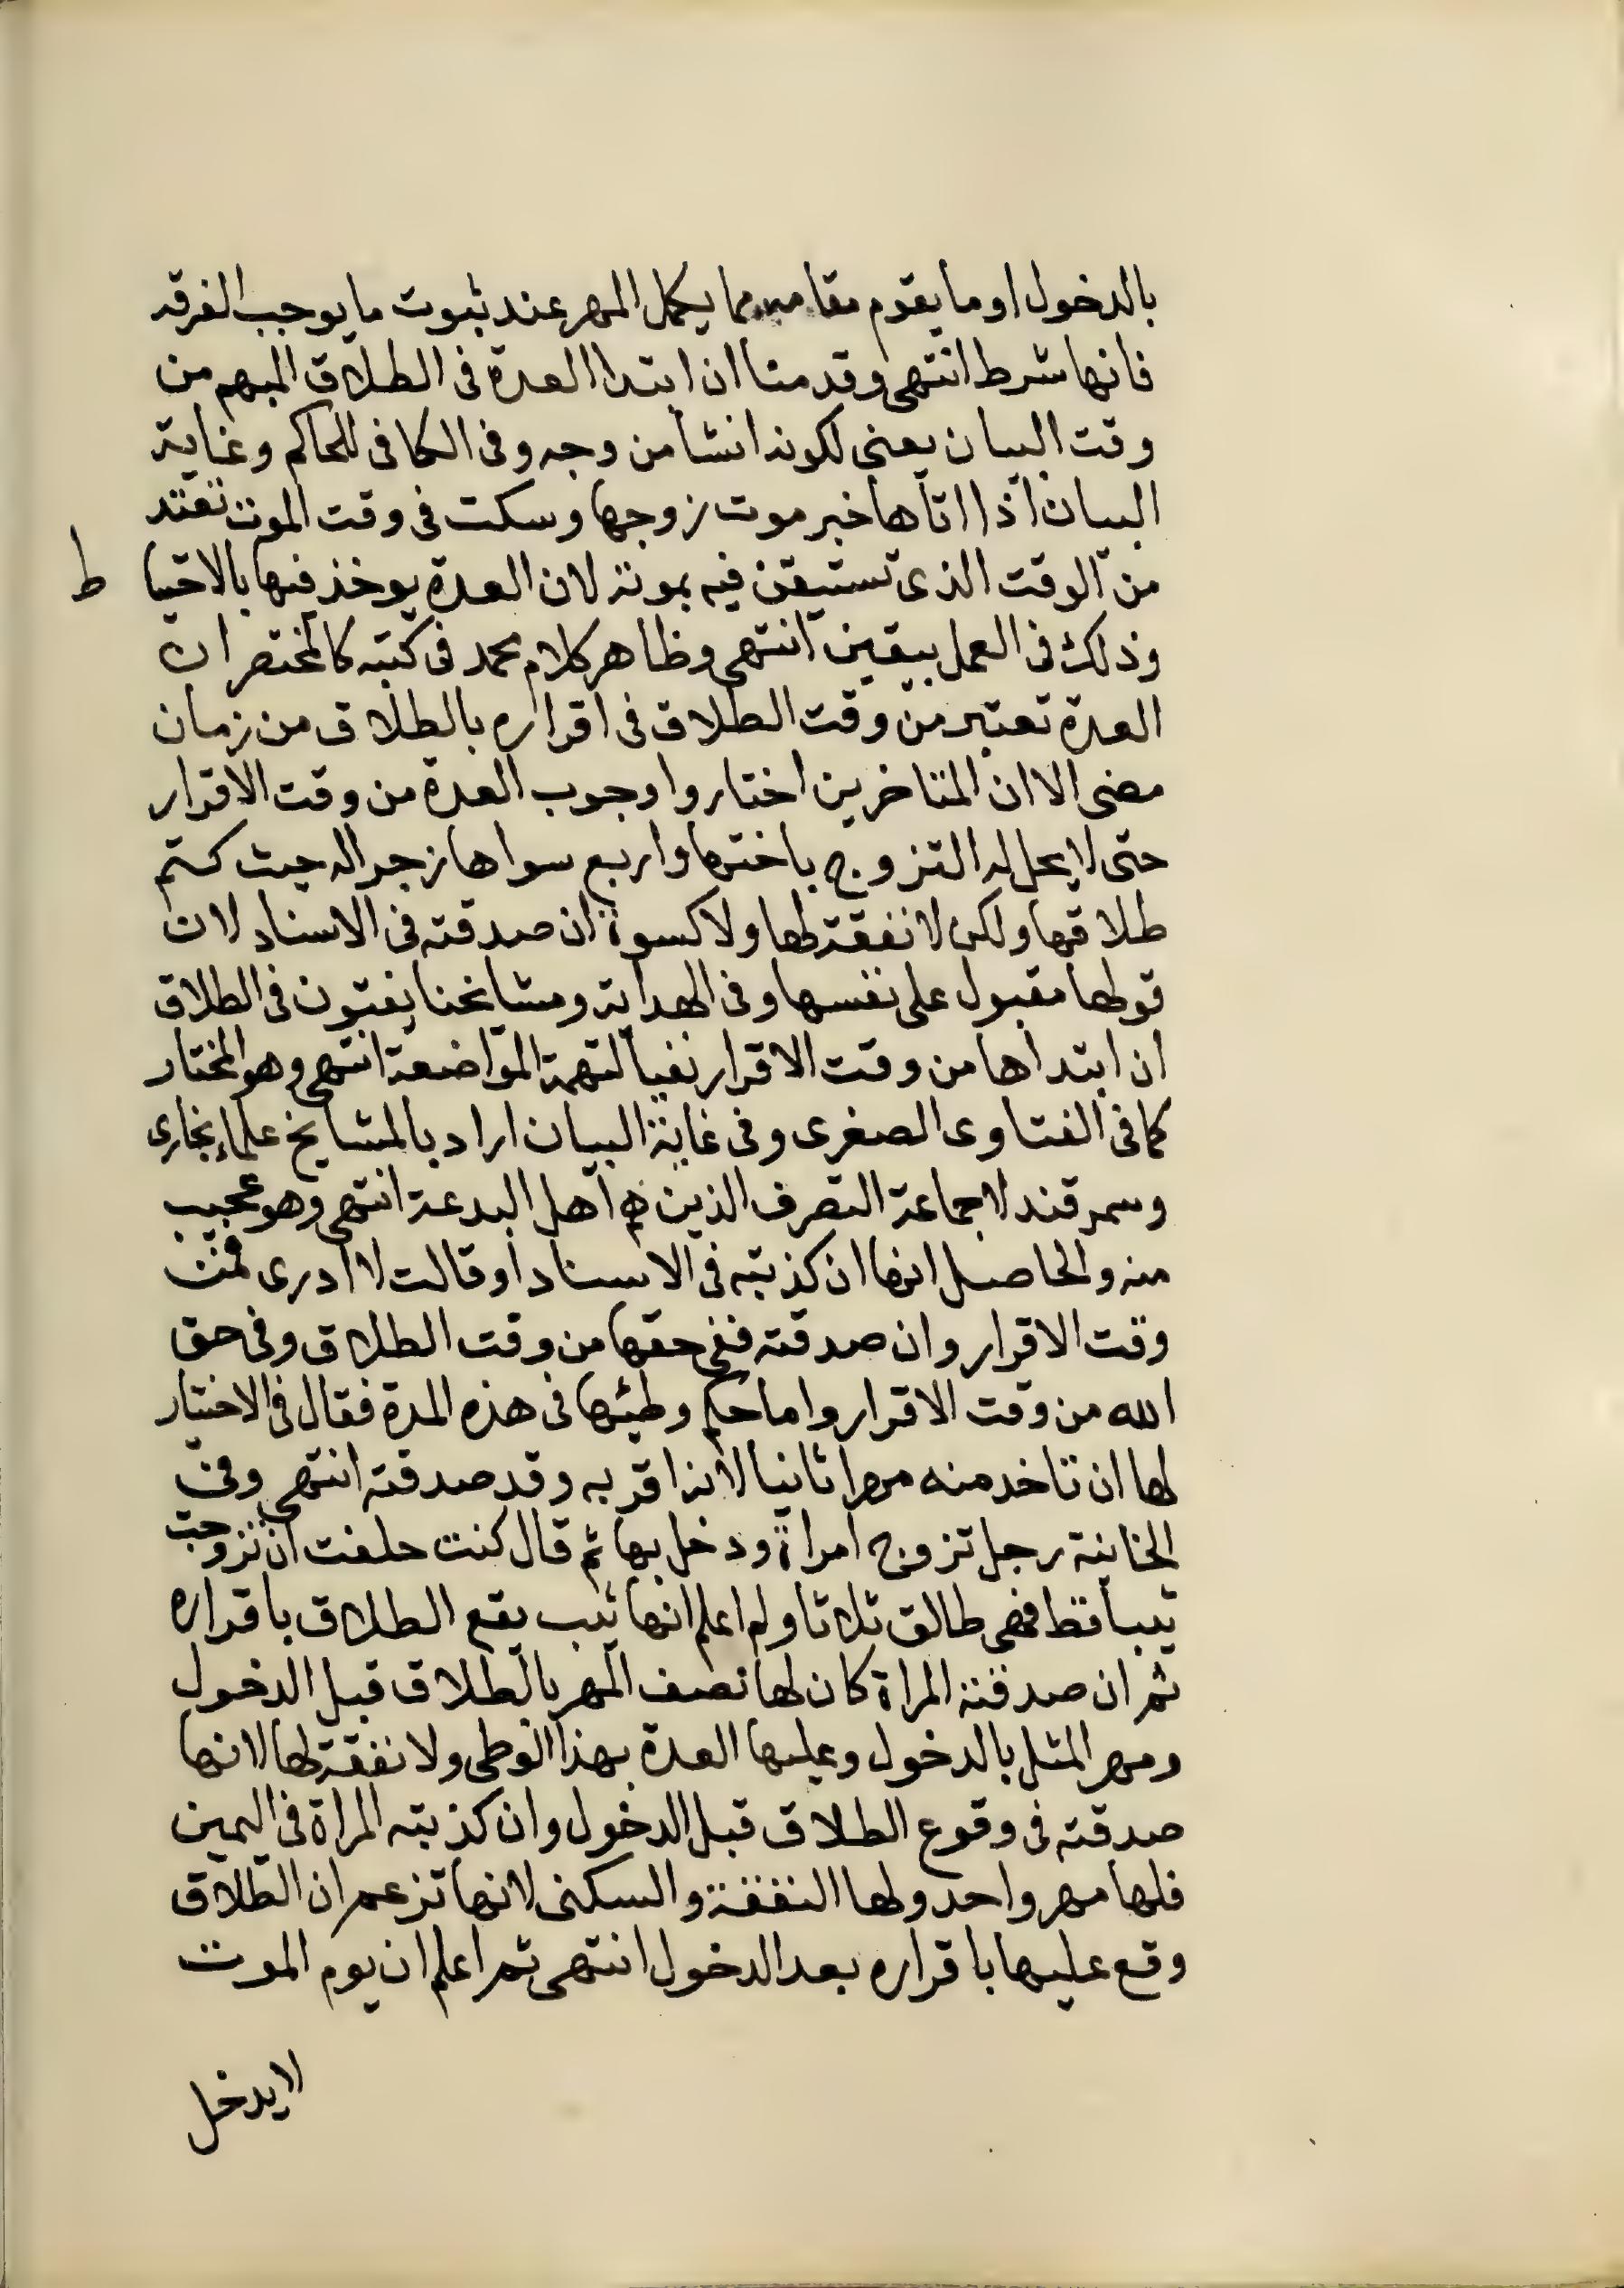 بالدخول او ما يقوم مقامه مما يكمل المهر عند ثبوت ما يوجب الفرقه
فانها شرط انتهى وقدمنا ان ابتدا العدة فى الطلاق المبهم من
وقت البيان يعنى لكونه انشا من وجه وفى الكافى للحاكم وغاية
البيان اذا اتاها خبر موت زوجها وسكت فى وقت الموت تعتد
من الوقت الذى تستيقن فيه بموته لان العدة يوخذ فيها بالاحتياط
وذلك فى العمل بيقين انتهى وظاهر كلام محمد فى كتبه كالمختصر ان
العدة تعتبر من وقت الطلاق فى اقراره بالطلاق من زمان
مضى الا ان المتاخرين اختاروا وجوب العدة من وقت الاقرار
حتى لا يحل له التزوج باختها واربع سواها زجرا له حيث كتم
طلاقها ولكن لا نفقة لها ولا كسوة ان صدقته فى الاسناد لان
قولها مقبول على نفسها وفى الهداية ومشايخنا يفتون فى الطلاق
ان ابتداها من وقت الاقرار نفيا لتهمة المواضعة انتهى وهو المختار
كما فى الفتاوى الصغرى وفى غاية البيان اراد بالمشايخ علماء بخارى
وسمرقند لا جماعة التصرف الذين هم اهل البدعة انتهى وهو عجيب
منه والحاصل انها ان كذبته فى الاسناد او قالت لا ادرى فمن
وقت الاقرار وان صدقته ففى حقها من وقت الطلاق وفى حق
الله من وقت الاقرار واما حكم وطيئها فى هذه المدة فقال فى الاختيار
لها ان تاخد منه مهرا ثانيا لانه اقر به وقد صدقته انتهى وفى
الخانية رجل تزوج امراة ودخل بها ثم قال كنت حلفت ان تزوجت
ثيبا قط فهى طالق ثلاثا ولم اعلم انها ثيب يقع الطلاق باقراره
ثم ان صدقته المراة كان لها نصف المهر بالطلاق قبل الدخول
ومهر المثل بالدخول وعليها العدة بهذا الوطى ولا نفقة لها لانها
صدقته فى وقوع الطلاق قبل الدخول وان كذبته المراة فى اليمين
فلها مهر واحد ولها النفقة والسكنى لانها تزعم ان الطلاق
وقع عليها باقراره بعد الدخول انتهى ثم اعلم ان يوم الموت
لا يدخل